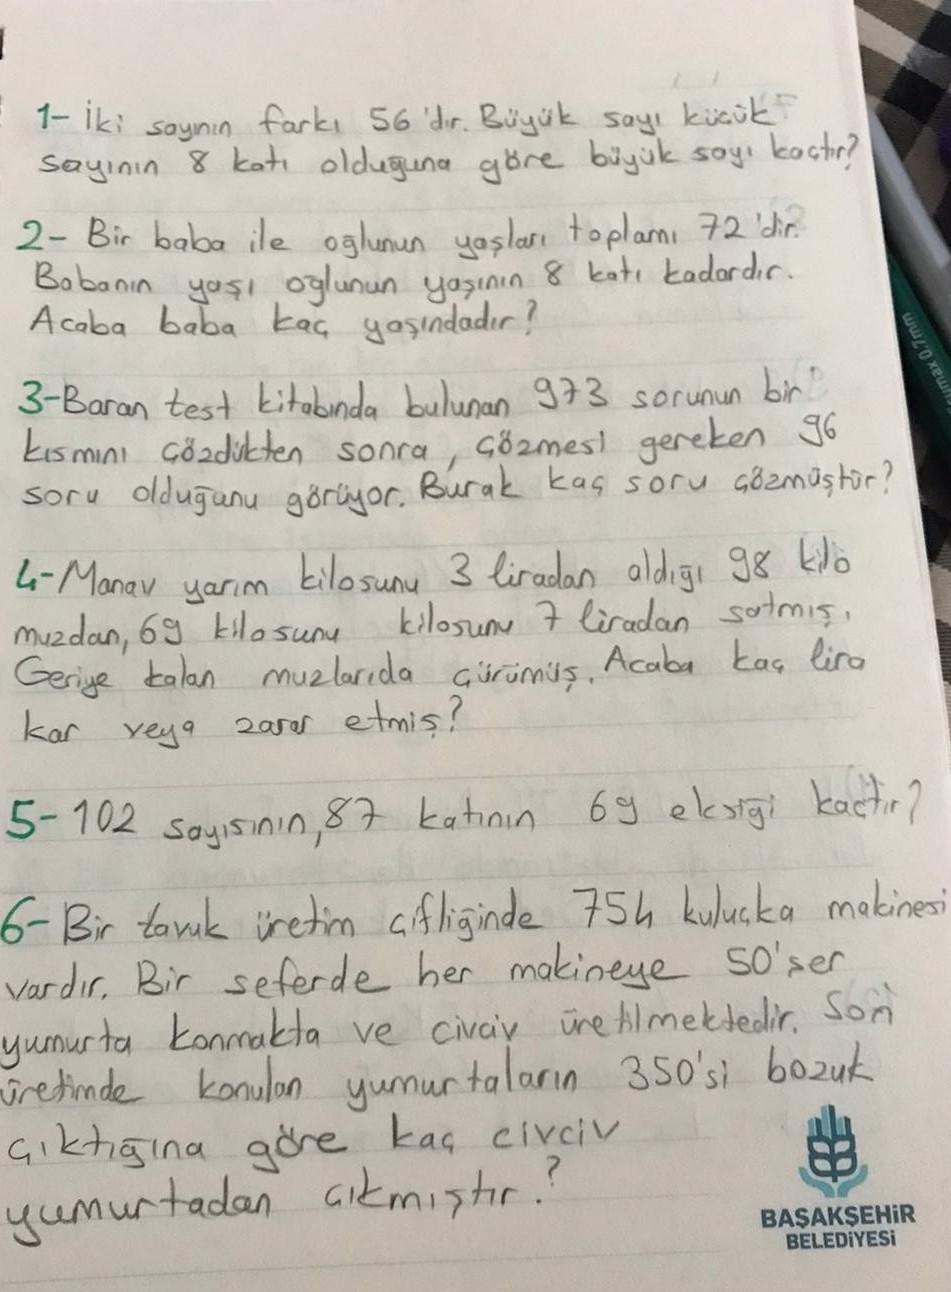 1- İki sayının farkı 56'dır. Büyük sayı küçük
sayının 8 katı olduğuna göre büyük sayı kaçtır?
2- Bir baba ile oğlunun yaşları toplamı 72'dir.
Babanın yaşı oğlunun yaşının 8 katı kadardır.
Acaba baba kaç yaşındadır?
3-Baran test kitabında bulunan 973 sorunun bir
kısmını çözdükten sonra, çözmesi gereken 96
soru olduğunu görüyor. Burak kaç soru çözmüştür?
4-Manav yarım kilosunu 3 liradan aldığı 98 kilo
muzdan, 69 kilosunu kilosunu 7 liradan satmış.
Geriye kalan muzlarıda çürümüş. Acaba kaç lira
kar veya zarar etmiş?
5- 102 sayısının, 87 katının 69 eksiği kaçtır?
6- Bir tavuk üretim çifliğinde 754 kuluçka makinesi
vardır. Bir seferde her makineye 50'şer
yumurta konmakta ve civciv üretilmektedir. Son
üretimde konulan yumurtaların 350'si bozuk
çıktığına göre kaç civciv
yumurtadan çıkmıştır.?
BAŞAKŞEHİR
BELEDİYESİ